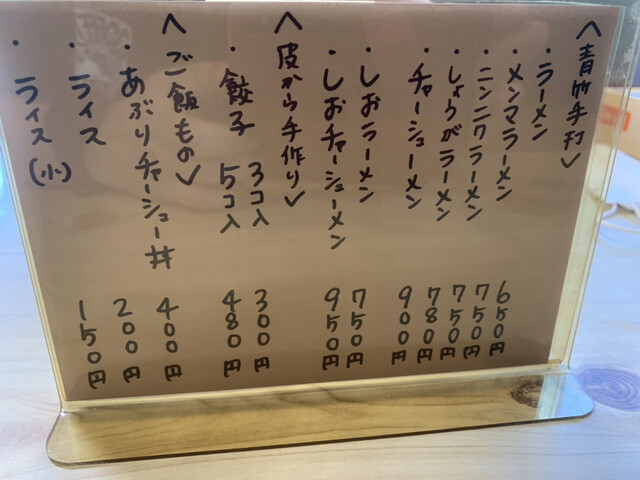 〈青竹手打〉
・ラーメン 650円
・メンマラーメン 750円
・ニンニクラーメン 750円
・しょうがラーメン 780円
・チャーシューメン 900円
・しおラーメン 750円
・しおチャーシューメン 950円
〈皮から手作り〉
・餃子 3コ入 300円
5コ入 480円
〈ご飯もの〉
・あぶりチャーシュー丼 400円
・ライス 200円
・ライス(小) 150円